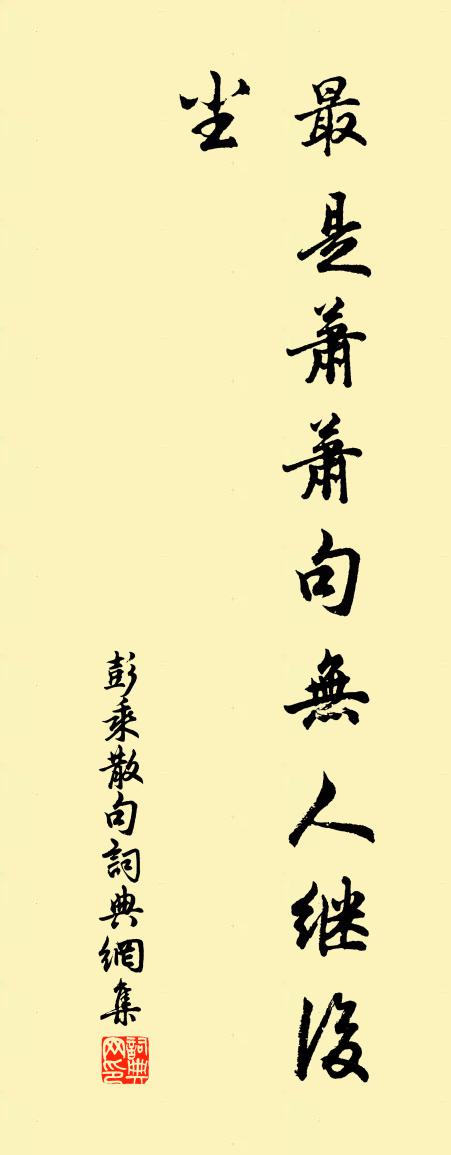 最是蕭蕭句無人继後
尘
彭乘散句詞典網集
詞典网印